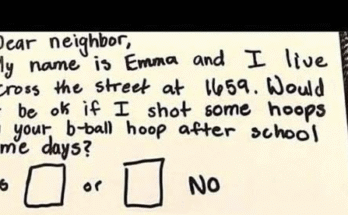 Dear neighbor,
My name is Emma and I live
cross the street at 1659. Would
be ok if I shot some hoops
your b-ball hoop after school
me days?
or NO